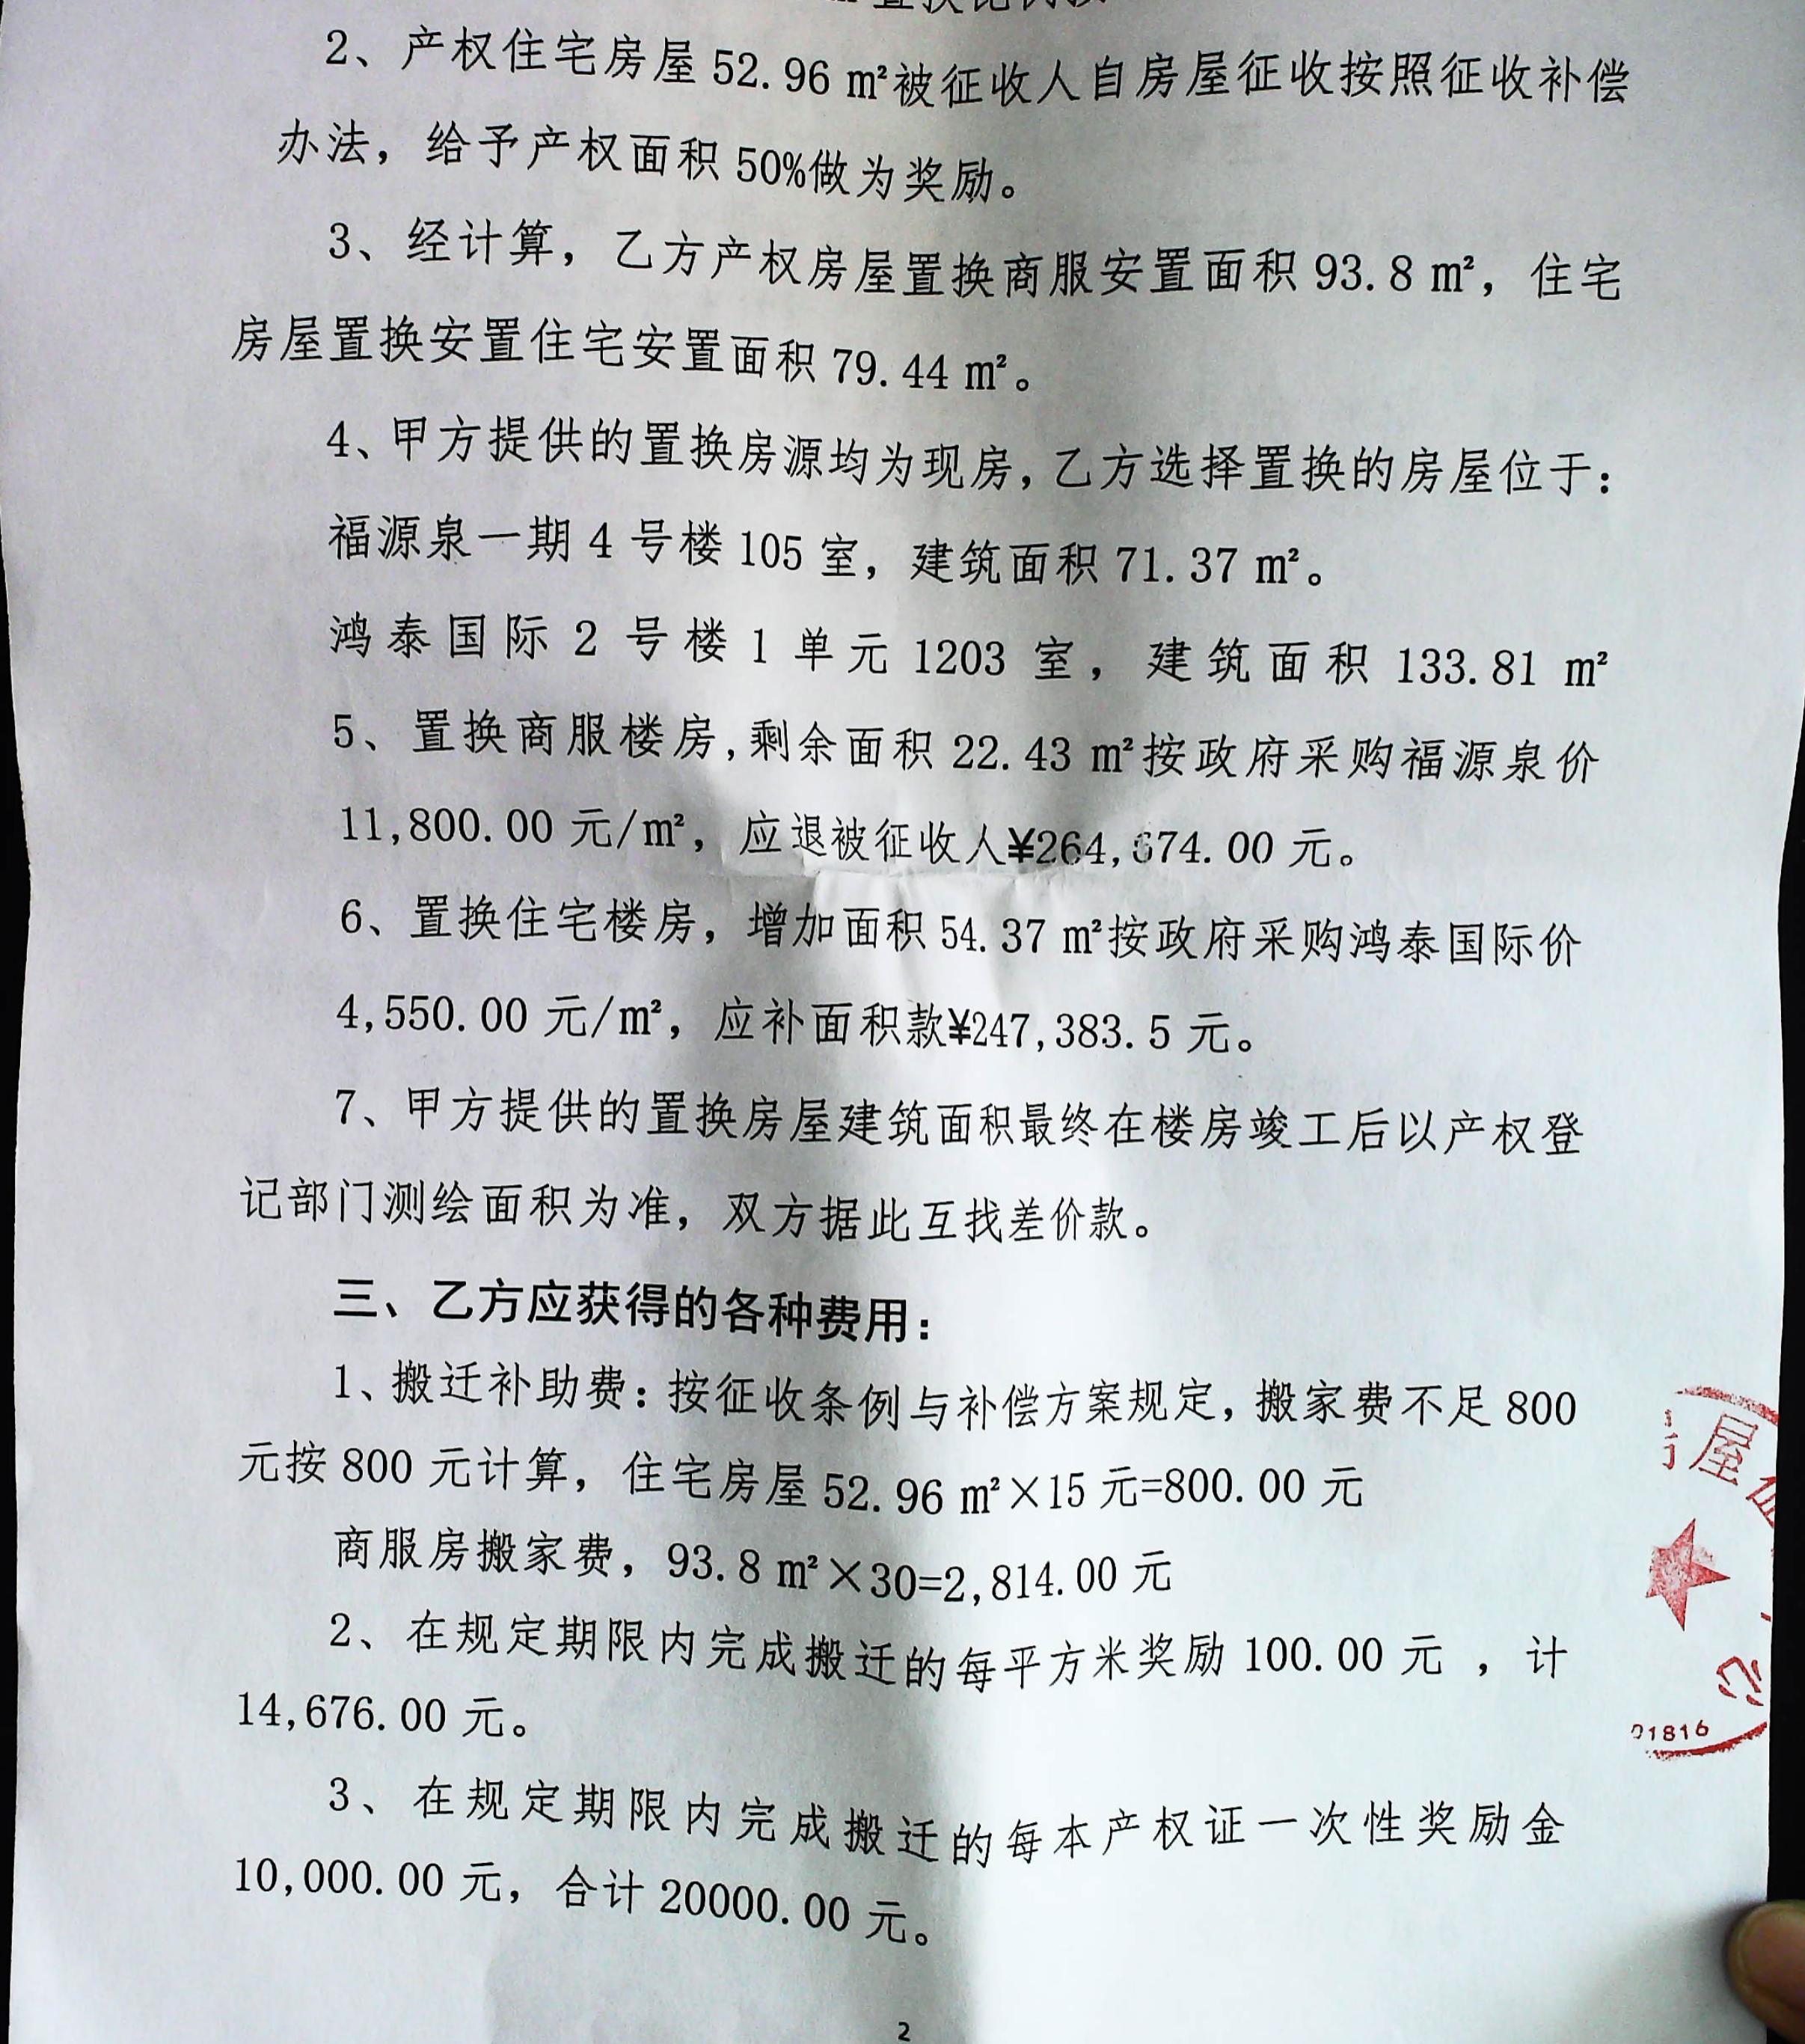 2、产权住宅房屋52.96 m²被征收人自房屋征收按照征收补偿
办法，给予产权面积50%做为奖励。
3、经计算，乙方产权房屋置换商服安置面积93.8 m²，住宅
房屋置换安置住宅安置面积79.44 m²。
4、甲方提供的置换房源均为现房，乙方选择置换的房屋位于：
福源泉一期4号楼105室，建筑面积71.37 m²。
鸿泰国际2号楼1单元1203室，建筑面积133.81 m²
5、置换商服楼房,剩余面积22.43 m²按政府采购福源泉价
11,800.00元/m²，应退被征收人¥264,674.00元。
6、置换住宅楼房，增加面积54.37 m²按政府采购鸿泰国际价
4,550.00元/m²，应补面积款¥247,383.5元。
7、甲方提供的置换房屋建筑面积最终在楼房竣工后以产权登
记部门测绘面积为准，双方据此互找差价款。
三、乙方应获得的各种费用：
1、搬迁补助费：按征收条例与补偿方案规定，搬家费不足800
元按800元计算，住宅房屋52.96 m²×15元=800.00元
商服房搬家费，93.8 m²×30=2,814.00元
2、在规定期限内完成搬迁的每平方米奖励100.00元 ，计
14,676.00元。
3、在规定期限内完成搬迁的每本产权证一次性奖励金
10,000.00元，合计20000.00元。
屋
01816
2